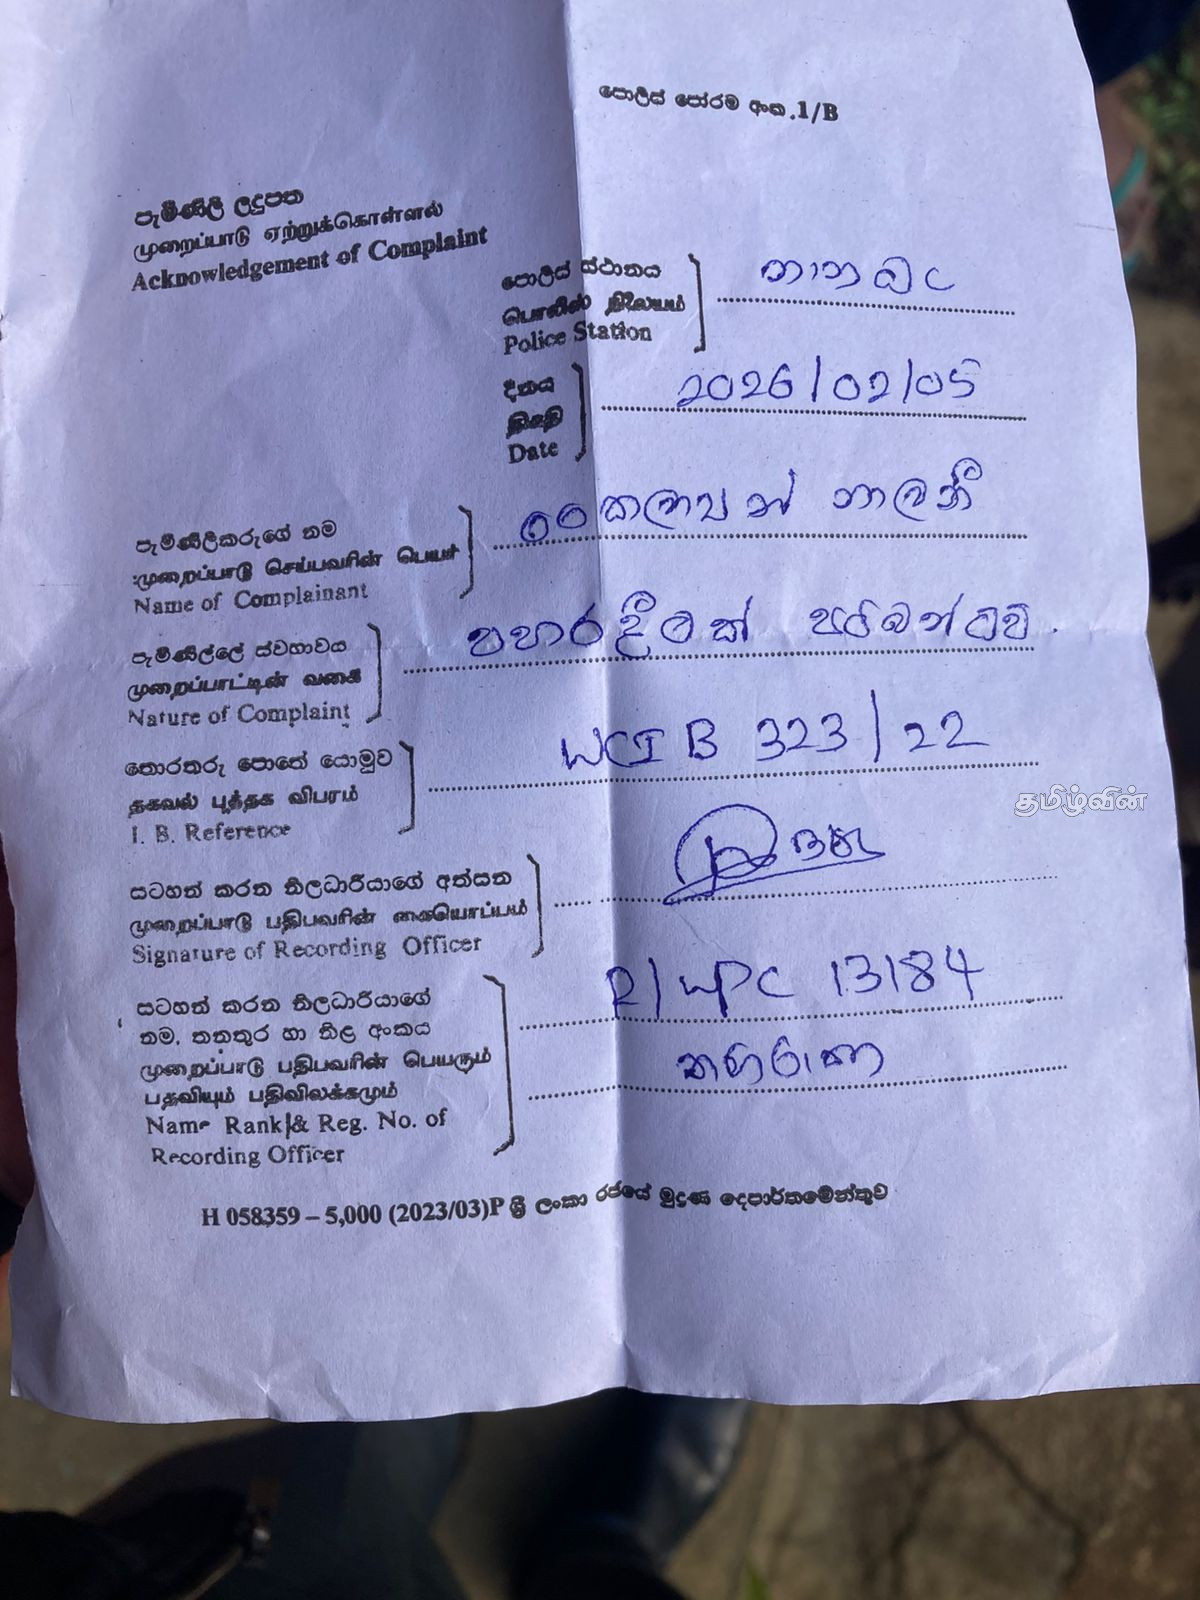 පොලිස් පෝරම අංක.1/B
පැමිණිලි ලදුපත
முறைப்பாடு ஏற்றுக்கொள்ளல்
Acknowledgement of Complaint
පොලිස් ස්ථානය
பொலிஸ் நிலையம்
Police Station
නානුඔය
දිනය
திகதி
Date
2026/02/05
පැමිණිලිකරුගේ නම
முறைப்பாடு செய்பவரின் பெயர்
Name of Complainant
කලාපන් නාලනී
පැමිණිල්ලේ ස්වභාවය
முறைப்பாட்டின் வகை
Nature of Complaint
පහරදීමක් සම්බන්ධව.
තොරතුරු පොතේ යොමුව
தகவல் புத்தக விபரம்
I. B. Reference
WCIB 323/22
தமிழ்வின்
සටහන් කරන නිලධාරියාගේ අත්සන
முறைப்பாடு பதிபவரின் கையொப்பம்
Signature of Recording Officer
සටහන් කරන නිලධාරියාගේ
නම, තනතුර හා නිළ අංකය
முறைப்பாடு பதிபவரின் பெயரும்
பதவியும் பதிவிலக்கமும்
Name Rank & Reg. No. of
Recording Officer
R/WPC 13184
H 058359 – 5,000 (2023/03)P ශ්‍රී ලංකා රජයේ මුද්‍රණ දෙපාර්තමේන්තුව